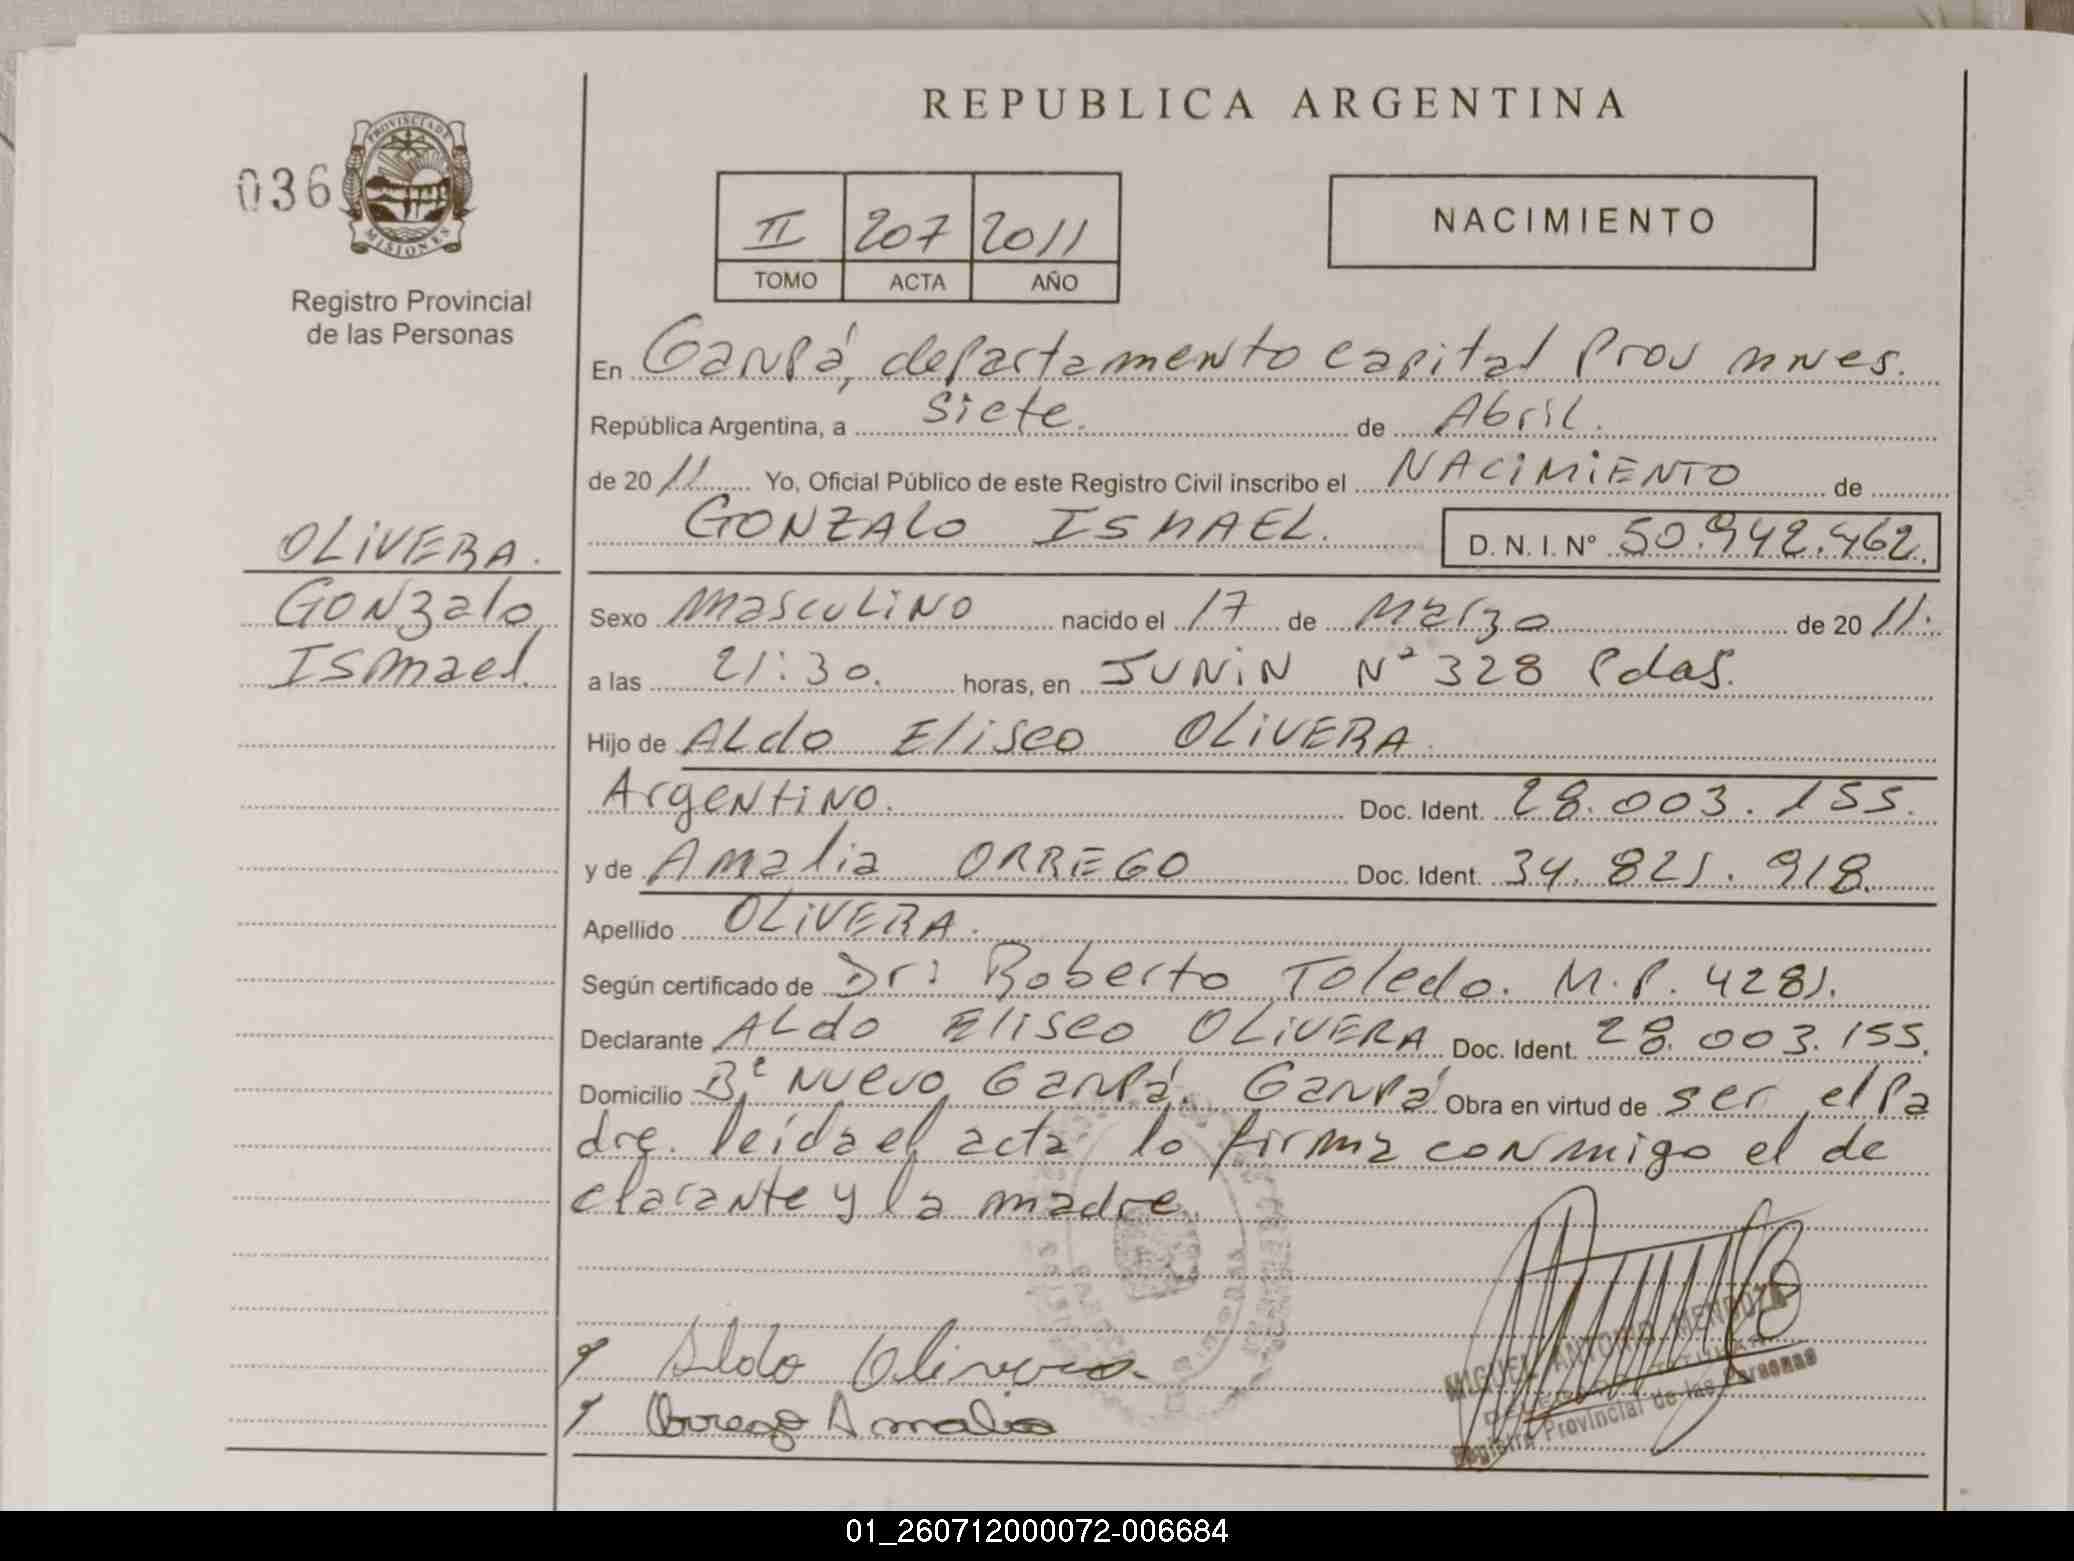 REPUBLICA ARGENTINA
036
PROVINCIA DE
MISIONES
Registro Provincial
de las Personas
II 207 2011
TOMO ACTA AÑO
NACIMIENTO
En Garupá, departamento capital Prov mnes.
República Argentina, a siete. de Abril.
de 20 11 Yo, Oficial Público de este Registro Civil inscribo el NACIMIENTO de
GONZALO ISMAEL. D. N. I. Nº 50.942.462.
OLIVERA.
Gonzalo
Ismael.
Sexo Masculino nacido el 17 de Marzo de 20 11.
a las 21:30. horas, en JUNIN Nº 328 Pdas.
Hijo de ALdo Eliseo OLIVERA.
Argentino. Doc. Ident. 28.003.155.
y de Amalia ORREGO Doc. Ident. 34.821.918.
Apellido OLIVERA.
Según certificado de Dr: Roberto Toledo. M.P. 4281.
Declarante ALdo Eliseo OLIVERA Doc. Ident. 28.003.155.
Domicilio Bº Nuevo Garupá. Garupá Obra en virtud de ser el Pa
dre. leída el acta lo firma conmigo el de
clarante y la madre
Aldo Olivera.
Orrego Amalia
MIGUEL ANTONIO MENDOZA
Registro Provincial de las Personas
01_260712000072-006684